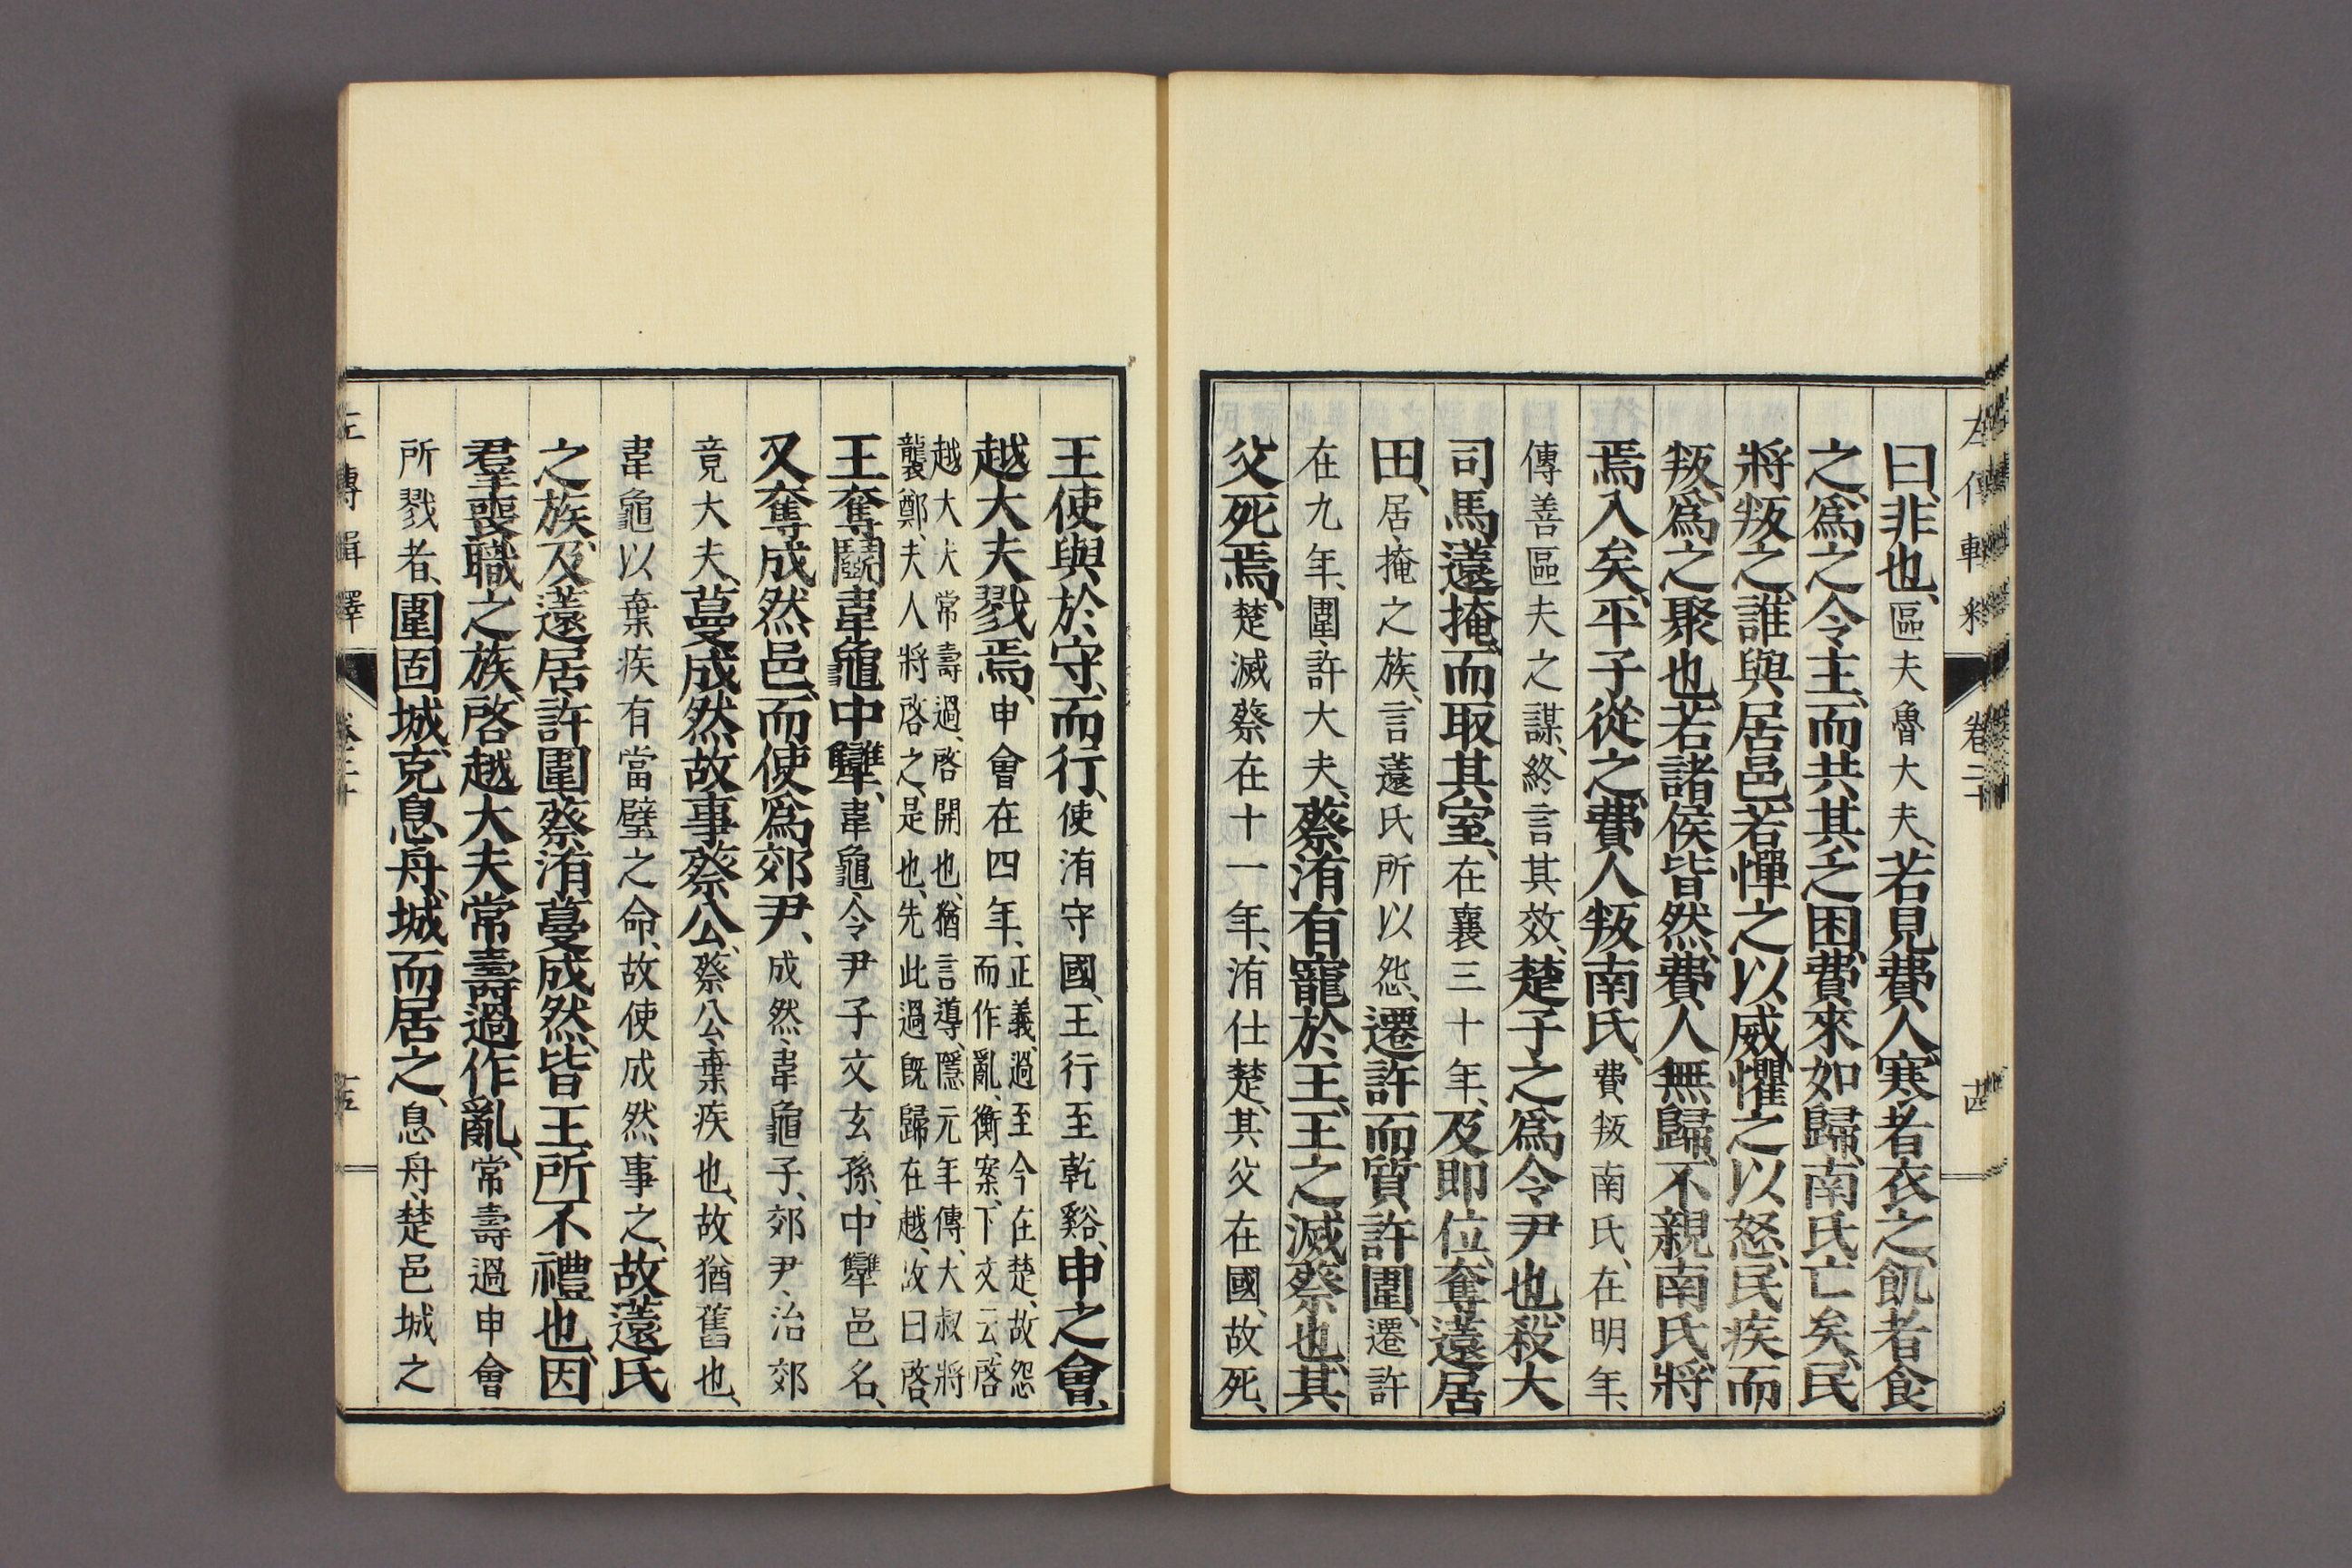 曰、非也、區夫魯大夫、若見費人、寒者衣之、飢者食
之、爲之令主、而共其乏困、費來如歸、南氏亡矣、民
將叛之、誰與居邑、若憚之以威、懼之以怒、民疾而
叛、爲之聚也、若諸侯皆然、費人無歸、不親南氏、將
焉入矣、平子從之、費人叛南氏、費叛南氏、在明年、
傳善區夫之謀、終言其效、楚子之爲令尹也、殺大
司馬薳掩、而取其室、在襄三十年、及即位、奪薳居
田、居、掩之族、言薳氏所以怨、遷許而質許圍、遷許
在九年、圍、許大夫、蔡洧有寵於王、王之滅蔡也、其
父死焉、楚滅蔡在十一年、洧仕楚、其父在國、故死、
王使與於守、而行、使洧守國、王行至乾谿、申之會、
越大夫戮焉、申會在四年、正義、過至今在楚、故怨
而作亂、衡案、下文云、啓
越大夫常壽過、啓開也、猶言導、隱元年傳、大叔將
襲鄭、夫人將啓之、是也、先此過既歸在越、故曰啓、
王奪鬬韋龜中犫、韋龜、令尹子文玄孫、中犫邑名、
又奪成然邑、而使爲郊尹、成然、韋龜子、郊尹、治郊
竟大夫、蔓成然故事蔡公、蔡公、棄疾也、故猶舊也、
韋龜以棄疾有當璧之命、故使成然事之、故薳氏
之族、及薳居、許圍、蔡洧、蔓成然、皆王所不禮也、因
羣喪職之族、啓越大夫常壽過作亂、常壽過申會
所戮者、圍固城、克息舟、城而居之、息舟、楚邑城之
左傳輯釋
卷二十
十四
左傳輯釋
卷二十
十五